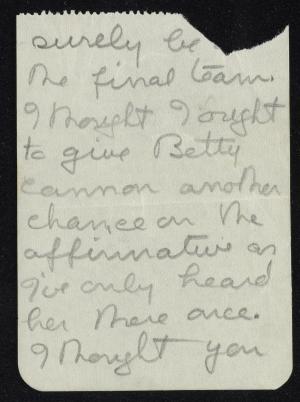 surely be
the final team.
I thought I ought
to give Betty
Cannon another
chance on the
affirmative as
I've only heard
her there once.
I thought you